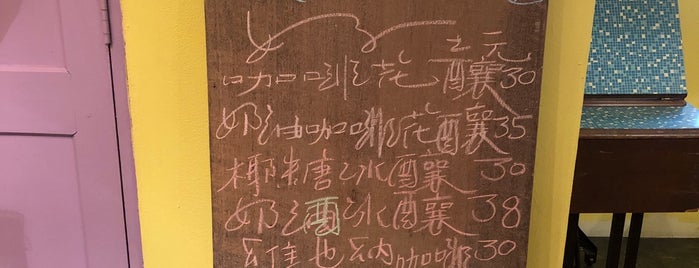 元
咖啡花釀30
奶油咖啡花釀35
椰糖冰釀30
奶酒冰釀38
維也納咖啡30